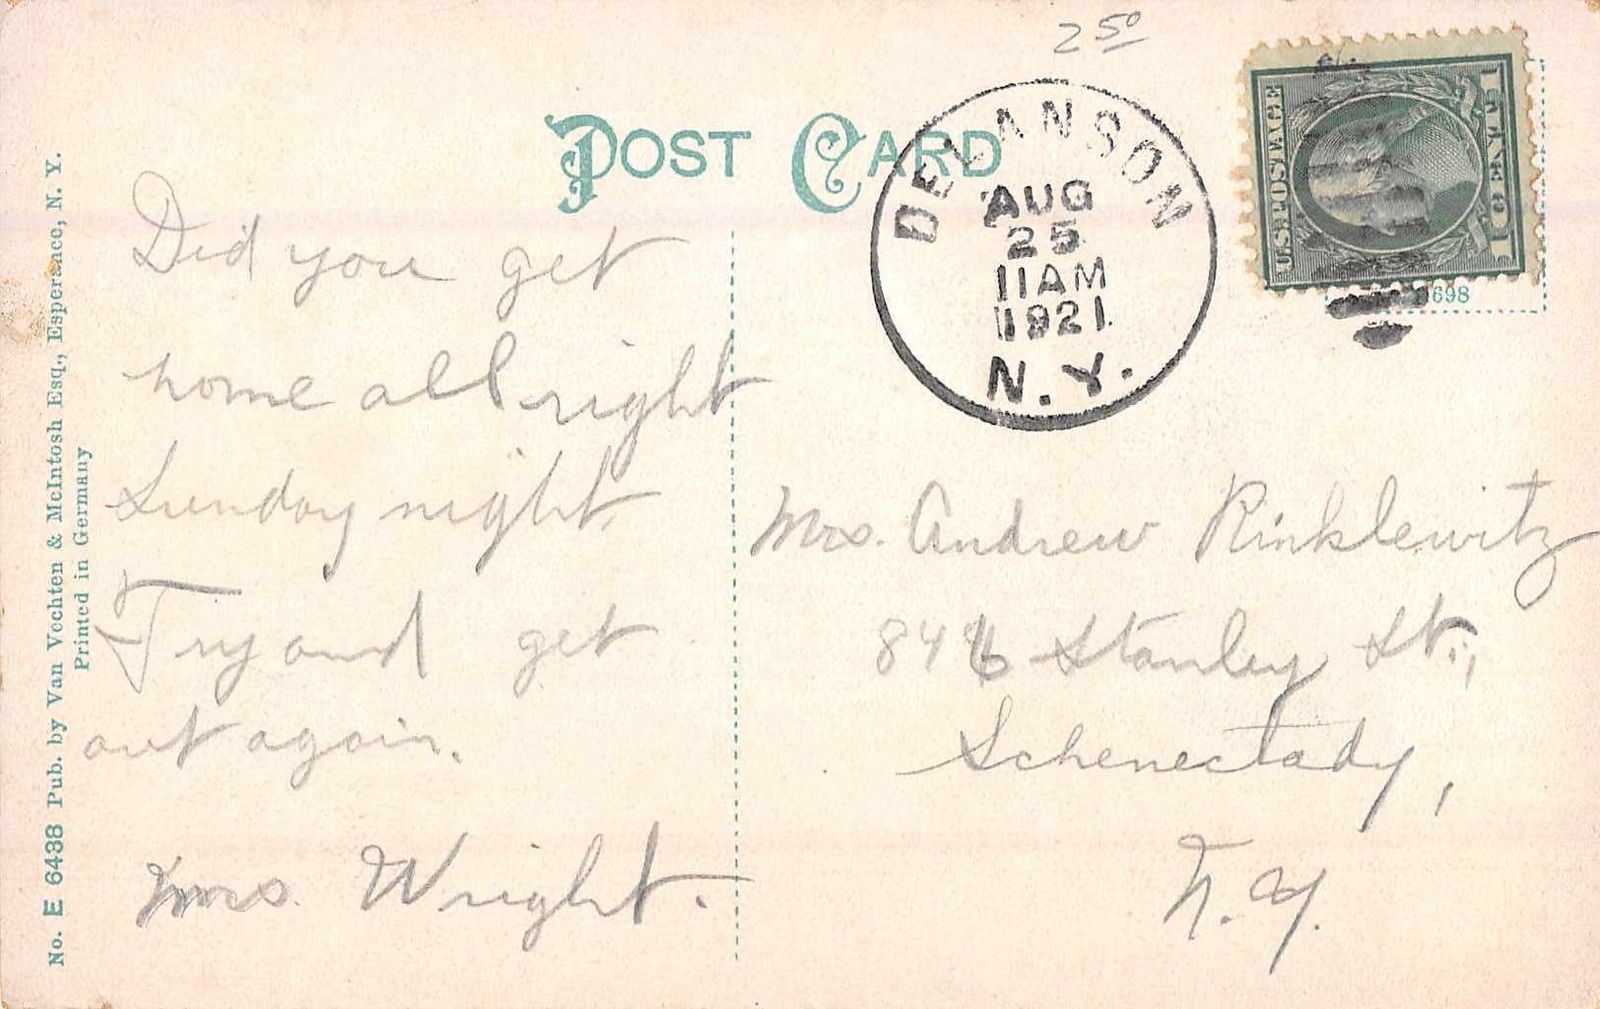 2 50
POST CARD
DELANSON
AUG
25
11 AM
1921
N.Y.
U.S. POSTAGE
1 ONE CENT 1
698
Did you get
home all right
Sunday night.
Try and get
out again.
Mrs. Wright.
Mrs. Andrew Rinklewitz
846 Stanley St.,
Schenectady,
N.Y.
No. E 6438 Pub. by Van Vechten & McIntosh Esq., Esperanco, N. Y.
Printed in Germany